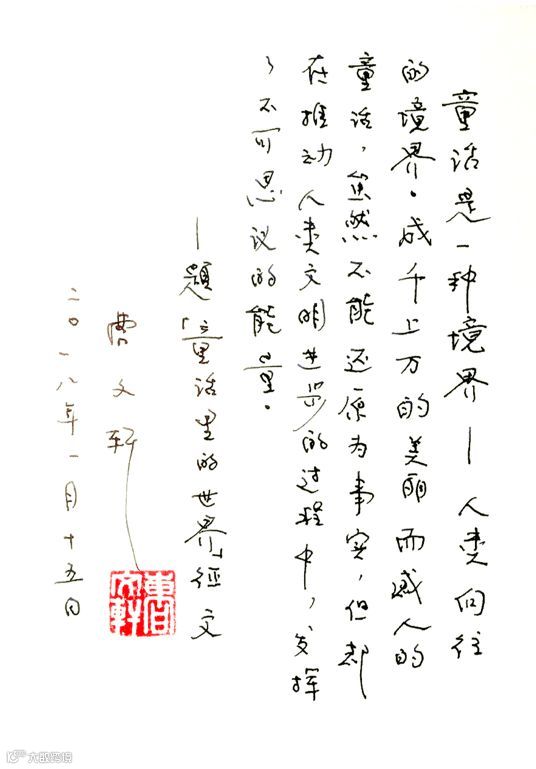 童话是一种境界—人类向往
的境界。成千上万的美丽而感人的
童话，虽然不能还原为事实，但却
在推动人类文明进步的过程中，发挥
了不可思议的能量。
—题「童话里的世界」征文
曹文轩
二〇一八年一月十五日
曹文軒
大数跨境